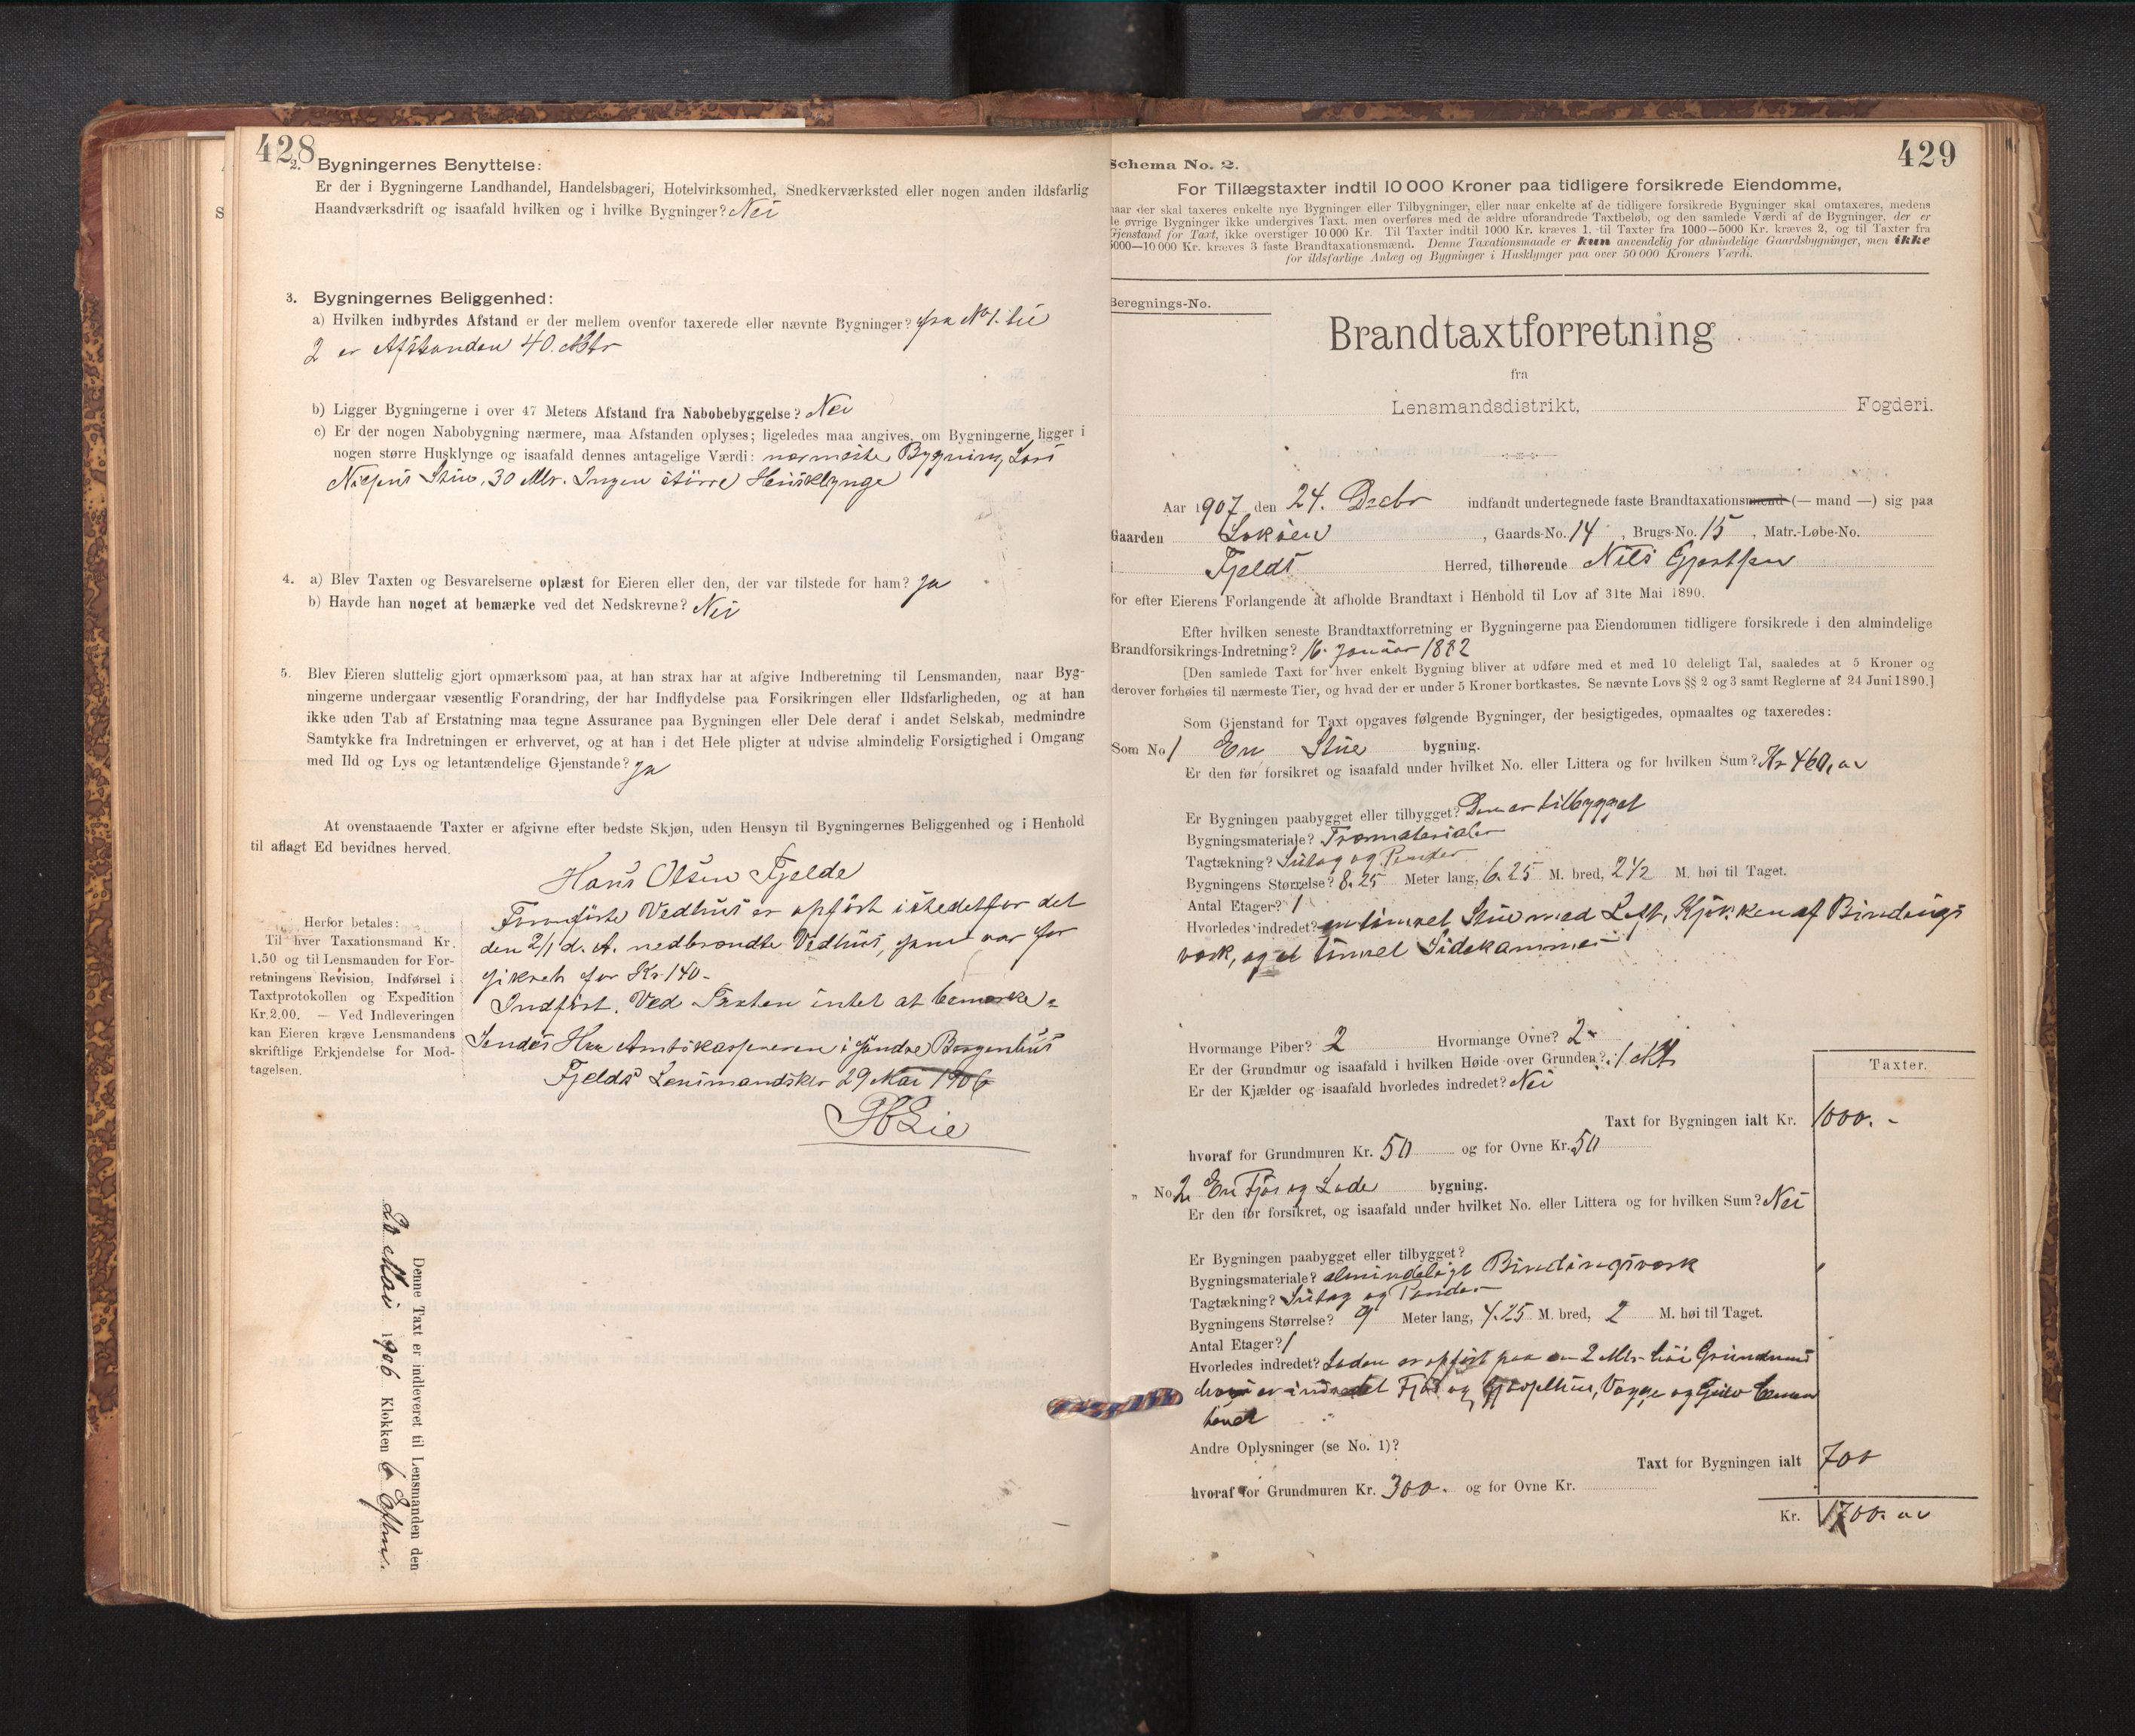 428
2. Bygningernes Benyttelse:
Er der i Bygningerne Landhandel, Handelsbageri, Hotelvirksomhed, Snedkerværksted eller nogen anden ildsfarlig
Haandværksdrift og isaafald hvilken og i hvilke Bygninger? Nei
3. Bygningernes Beliggenhed:
a) Hvilken indbyrdes Afstand er der mellem ovenfor taxerede eller nævnte Bygninger? fra No 1. til
2 er Afstanden 40. Mtr
b) Ligger Bygningerne i over 47 Meters Afstand fra Nabobebyggelse? Nei
c) Er der nogen Nabobygning nærmere, maa Afstanden oplyses; ligeledes maa angives, om Bygningerne ligger i
nogen større Husklynge og isaafald dennes antagelige Værdi: nærmeste Bygning Lars
Stue, 30 Mtr. Ingen större Husklynge
4. a) Blev Taxten og Besvarelserne oplæst for Eieren eller den, der var tilstede for ham? Ja
b) Havde han noget at bemærke ved det Nedskrevne? Nei
5. Blev Eieren sluttelig gjort opmærksom paa, at han strax har at afgive Indberetning til Lensmanden, naar Byg-
ningerne undergaar væsentlig Forandring, der har Indflydelse paa Forsikringen eller Ildsfarligheden, og at han
ikke uden Tab af Erstatning maa tegne Assurance paa Bygningen eller Dele deraf i andet Selskab, medmindre
Samtykke fra Indretningen er erhvervet, og at han i det Hele pligter at udvise almindelig Forsigtighed i Omgang
med Ild og Lys og letantændelige Gjenstande? Ja
At ovenstaaende Taxter er afgivne efter bedste Skjøn, uden Hensyn til Bygningernes Beliggenhed og i Henhold
til aflagt Ed bevidnes herved.
Hans Olsen Fjelde
Herfor betales:
Til hver Taxationsmand Kr.
1,50 og til Lensmanden for For-
retningens Revision, Indførsel i
Taxtprotokollen og Expedition
Kr. 2,00. — Ved Indleveringen
kan Eieren kræve Lensmandens
skriftlige Erkjendelse for Mod-
tagelsen.
Vedhus er opfört istedetfor det
den 2/1 d. A. nedbrændte Vedhus, som var for
sikret for Kr 140-
Indfört. Ved Taxten intet at bemærke.
Sendes Herr Amtskassereren i Söndre Bergenhus
Fjelds Lensmandsktr 29 Mai 1906
Lie
Denne Taxt er indleveret til Lensmanden den
28 Mai 1906 Klokken 6 Eftm.
429
Schema No. 2.
For Tillægstaxter indtil 10 000 Kroner paa tidligere forsikrede Eiendomme,
naar der skal taxeres enkelte nye Bygninger eller Tilbygninger, eller naar enkelte af de tidligere forsikrede Bygninger skal omtaxeres, medens
de øvrige Bygninger ikke undergives Taxt, men overføres med de ældre uforandrede Taxtbeløb, og den samlede Værdi af de Bygninger, der er
Gjenstand for Taxt, ikke overstiger 10 000 Kr. Til Taxter indtil 1000 Kr. kræves 1, til Taxter fra 1000—5000 Kr. kræves 2, og til Taxter fra
5000—10 000 Kr. kræves 3 faste Brandtaxationsmænd. Denne Taxationsmaade er kun anvendelig for almindelige Gaardsbygninger, men ikke
for ildsfarlige Anlæg og Bygninger i Husklynger paa over 50 000 Kroners Værdi.
Beregnings-No.
Brandtaxtforretning
fra
Lensmandsdistrikt, Fogderi.
Aar 1907 den 24. Decbr indfandt undertegnede faste Brandtaxationsmænd (— mand —) sig paa
Gaarden Loköen, Gaards-No. 14, Brugs-No. 15, Matr.-Løbe-No.
i Fjelds Herred, tilhørende Nils Gjertsen
for efter Eierens Forlangende at afholde Brandtaxt i Henhold til Lov af 31te Mai 1890.
Efter hvilken seneste Brandtaxtforretning er Bygningerne paa Eiendommen tidligere forsikrede i den almindelige
Brandforsikrings-Indretning? 16. Januar 1882
[Den samlede Taxt for hver enkelt Bygning bliver at udføre med et med 10 deleligt Tal, saaledes at 5 Kroner og
derover forhøies til nærmeste Tier, og hvad der er under 5 Kroner bortkastes. Se nævnte Lovs §§ 2 og 3 samt Reglerne af 24 Juni 1890.]
Som Gjenstand for Taxt opgaves følgende Bygninger, der besigtigedes, opmaaltes og taxeredes:
Som No 1 En Stue bygning.
Er den før forsikret og isaafald under hvilket No. eller Littera og for hvilken Sum? Kr 460,00
Er Bygningen paabygget eller tilbygget? Den er tilbygget
Bygningsmateriale? Træmaterialer
Tagtækning? Sutag og Pander
Bygningens Størrelse? 8.25 Meter lang, 6.25 M. bred, 2 1/2 M. høi til Taget.
Antal Etager? 1
Hvorledes indredet? en tömret Stue med Loft, Kjökken af Bindings
værk, og et tömret Sidekammer
Hvormange Piber? 2 Hvormange Ovne? 2
Er der Grundmur og isaafald i hvilken Høide over Grunden? 1 Mt
Er der Kjælder og isaafald hvorledes indredet? Nei
Taxter.
Taxt for Bygningen ialt Kr. 1000.-
hvoraf for Grundmuren Kr. 50 og for Ovne Kr. 50
„ No 2 En Fjös og Lade bygning.
Er den før forsikret, og isaafald under hvilket No. eller Littera og for hvilken Sum? Nei
Er Bygningen paabygget eller tilbygget?
Bygningsmateriale? almindeligt Bindingsværk
Tagtækning? Sutag og Pander
Bygningens Størrelse? 9 Meter lang, 4.25 M. bred, 2 M. høi til Taget.
Antal Etager? 1
Hvorledes indredet? Laden er opfört paa en 2 Mtr höi Grundmur
hvori er indredet Fjös og Gjödselhus, Vægge og Gulv cemen
teret
Andre Oplysninger (se No. 1)?
Taxt for Bygningen ialt 700
hvoraf for Grundmuren Kr. 300. og for Ovne Kr.
Kr. 1700.00